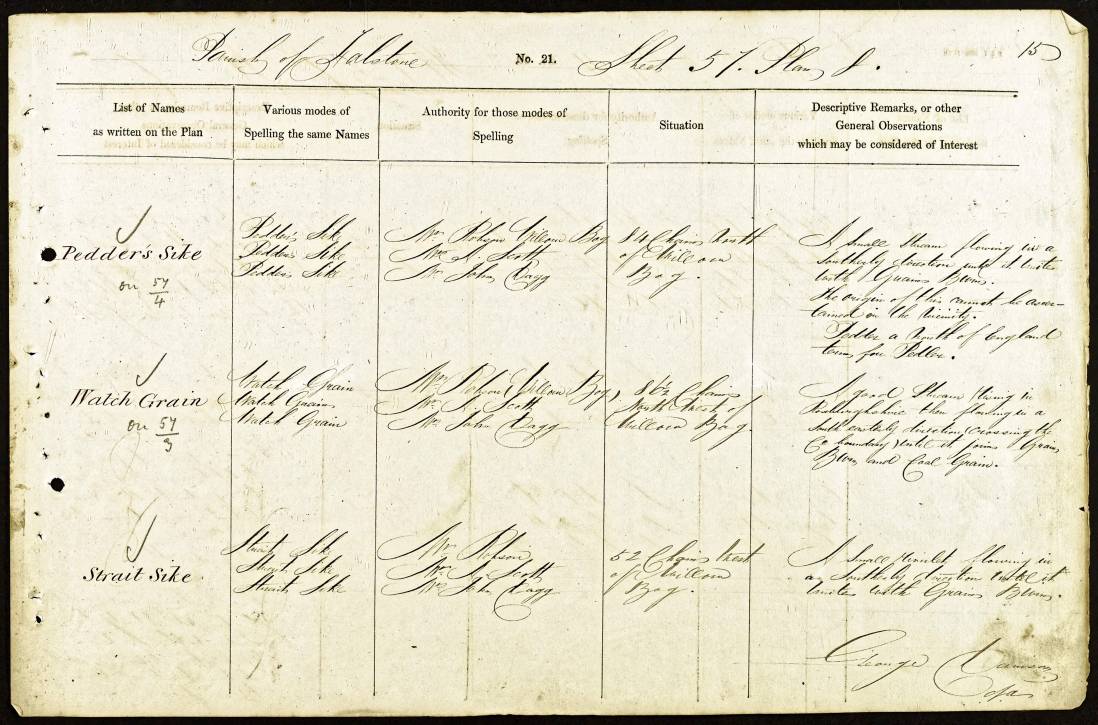 Parish of Falstone No. 21. Sheet 57. Plan J. 15
List of Names
as written on the Plan
Various modes of
Spelling the same Names
Authority for those modes of
Spelling
Situation
Descriptive Remarks, or other
General Observations
which may be considered of Interest
Pedder's Sike
on 57/4
Pedder's Sike
Pedder's Sike
Pedder's Sike
Mr. Robson Willow Bog
Mr. A. Scott
Mr. John Dagg
84 Chains North
of Willow
Bog.
A small stream flowing in a
southerly direction until it unites
with Grains Burn.
The origin of this cannot be ascer-
tained in the vicinity.
Pedder a North of England
term for Pedler.
Watch Grain
on 57/3
Watch Grain
Watch Grain
Watch Grain
Mr. Robson (Willow Bog)
Mr. A. Scott
Mr. John Dagg
86½ Chains
North West of
Willow Bog.
A good Stream rising in
Roxburghshire then flowing in a
South easterly direction (crossing the
Co. boundary) until it joins Grains
Burn and Coal Grain.
Strait Sike
Strait Sike
Strait Sike
Strait Sike
Mr. Robson
Mr. A. Scott
Mr. John Dagg
52 Chains West
of Willow
Bog.
A small rivulet flowing in
a southerly direction until it
unites with Grains Burn.
George